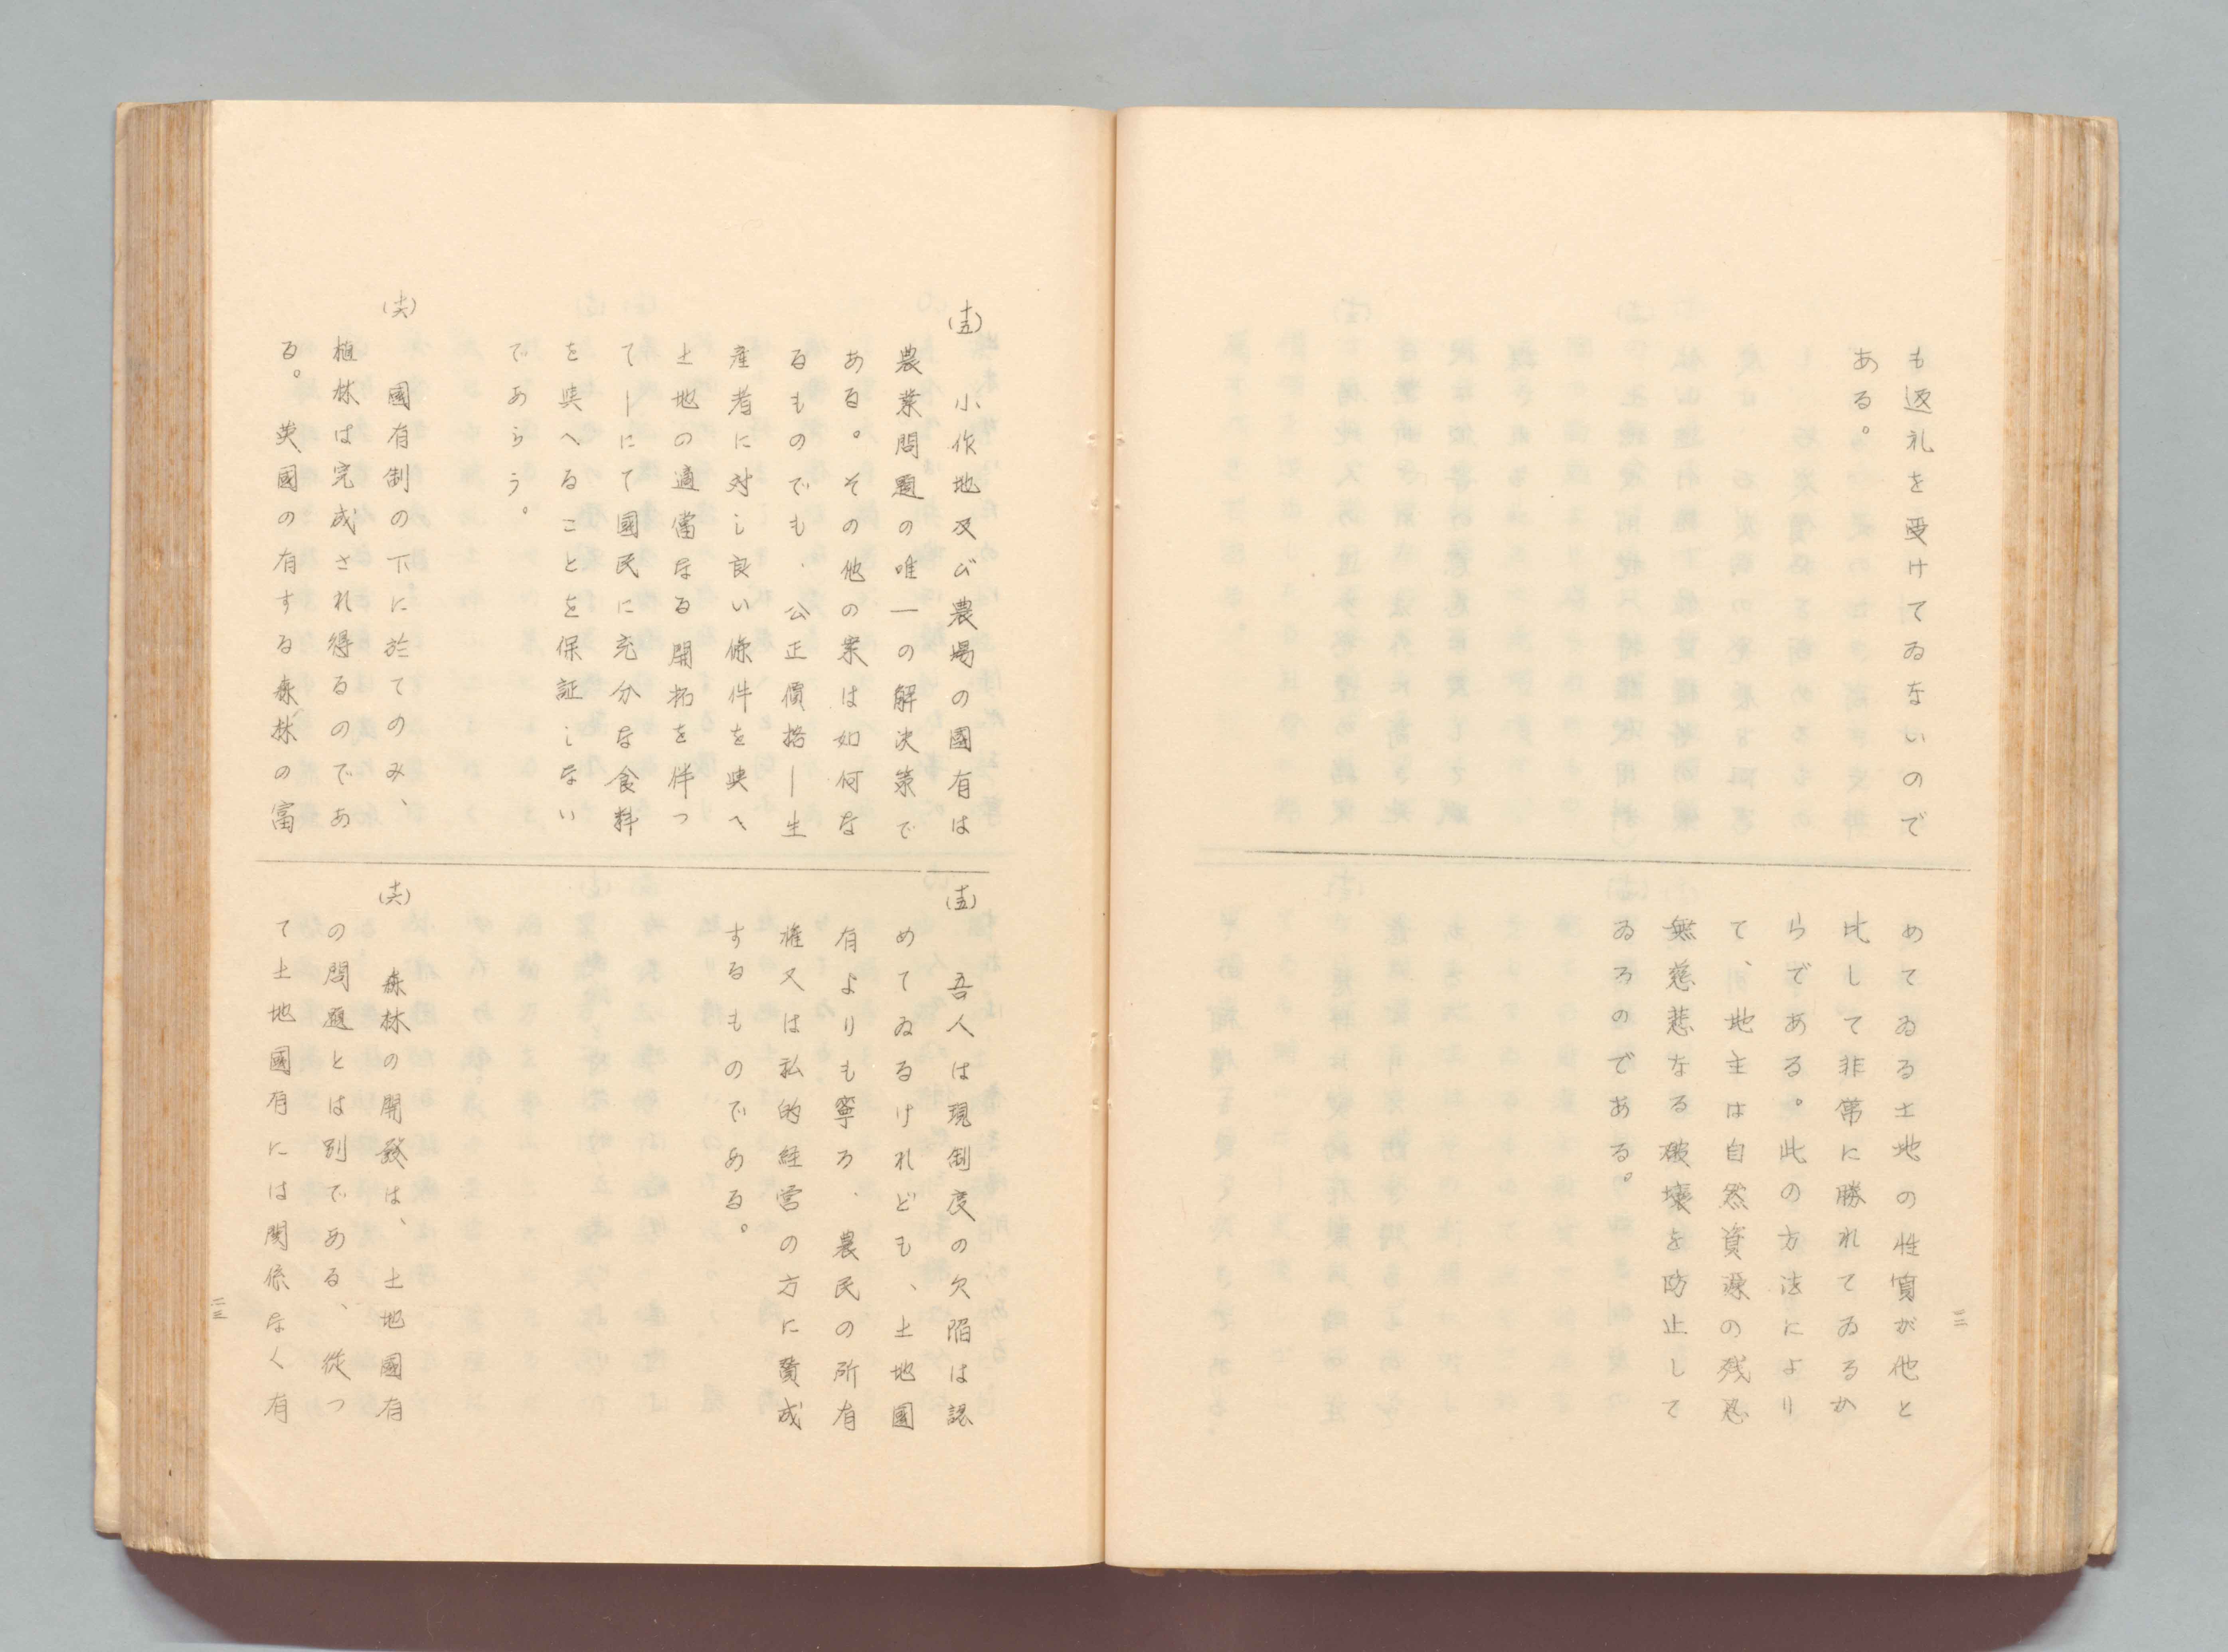 も返礼を受けてゐないので
ある。
めてゐる土地の性質が他と
比して非常に勝れてゐるか
らである。此の方法により
て、地主は自然資源の残忍
無慈悲なる破壊を防止して
ゐろのである。
二二
(十五)
小作地及び農場の國有は
農業問題の唯一の解决策で
ある。その他の案は如何な
るものでも、公正價格—生
産者に対し良い條件を與へ
土地の適當なる開拓を伴つ
て—にて國民に充分な食料
を與へることを保証しない
であらう。
(十六)
國有制の下に於てのみ、
植林は完成され得るのであ
る。英國の有する森林の富
(十五)
吾人は現制度の欠陥は認
めてゐるけれども、土地國
有よりも寧ろ、農民の所有
権又は私的経営の方に賛成
するものである。
(十六)
森林の開發は、土地國有
の問題とは別である、従つ
て土地國有には関係なく有
二三